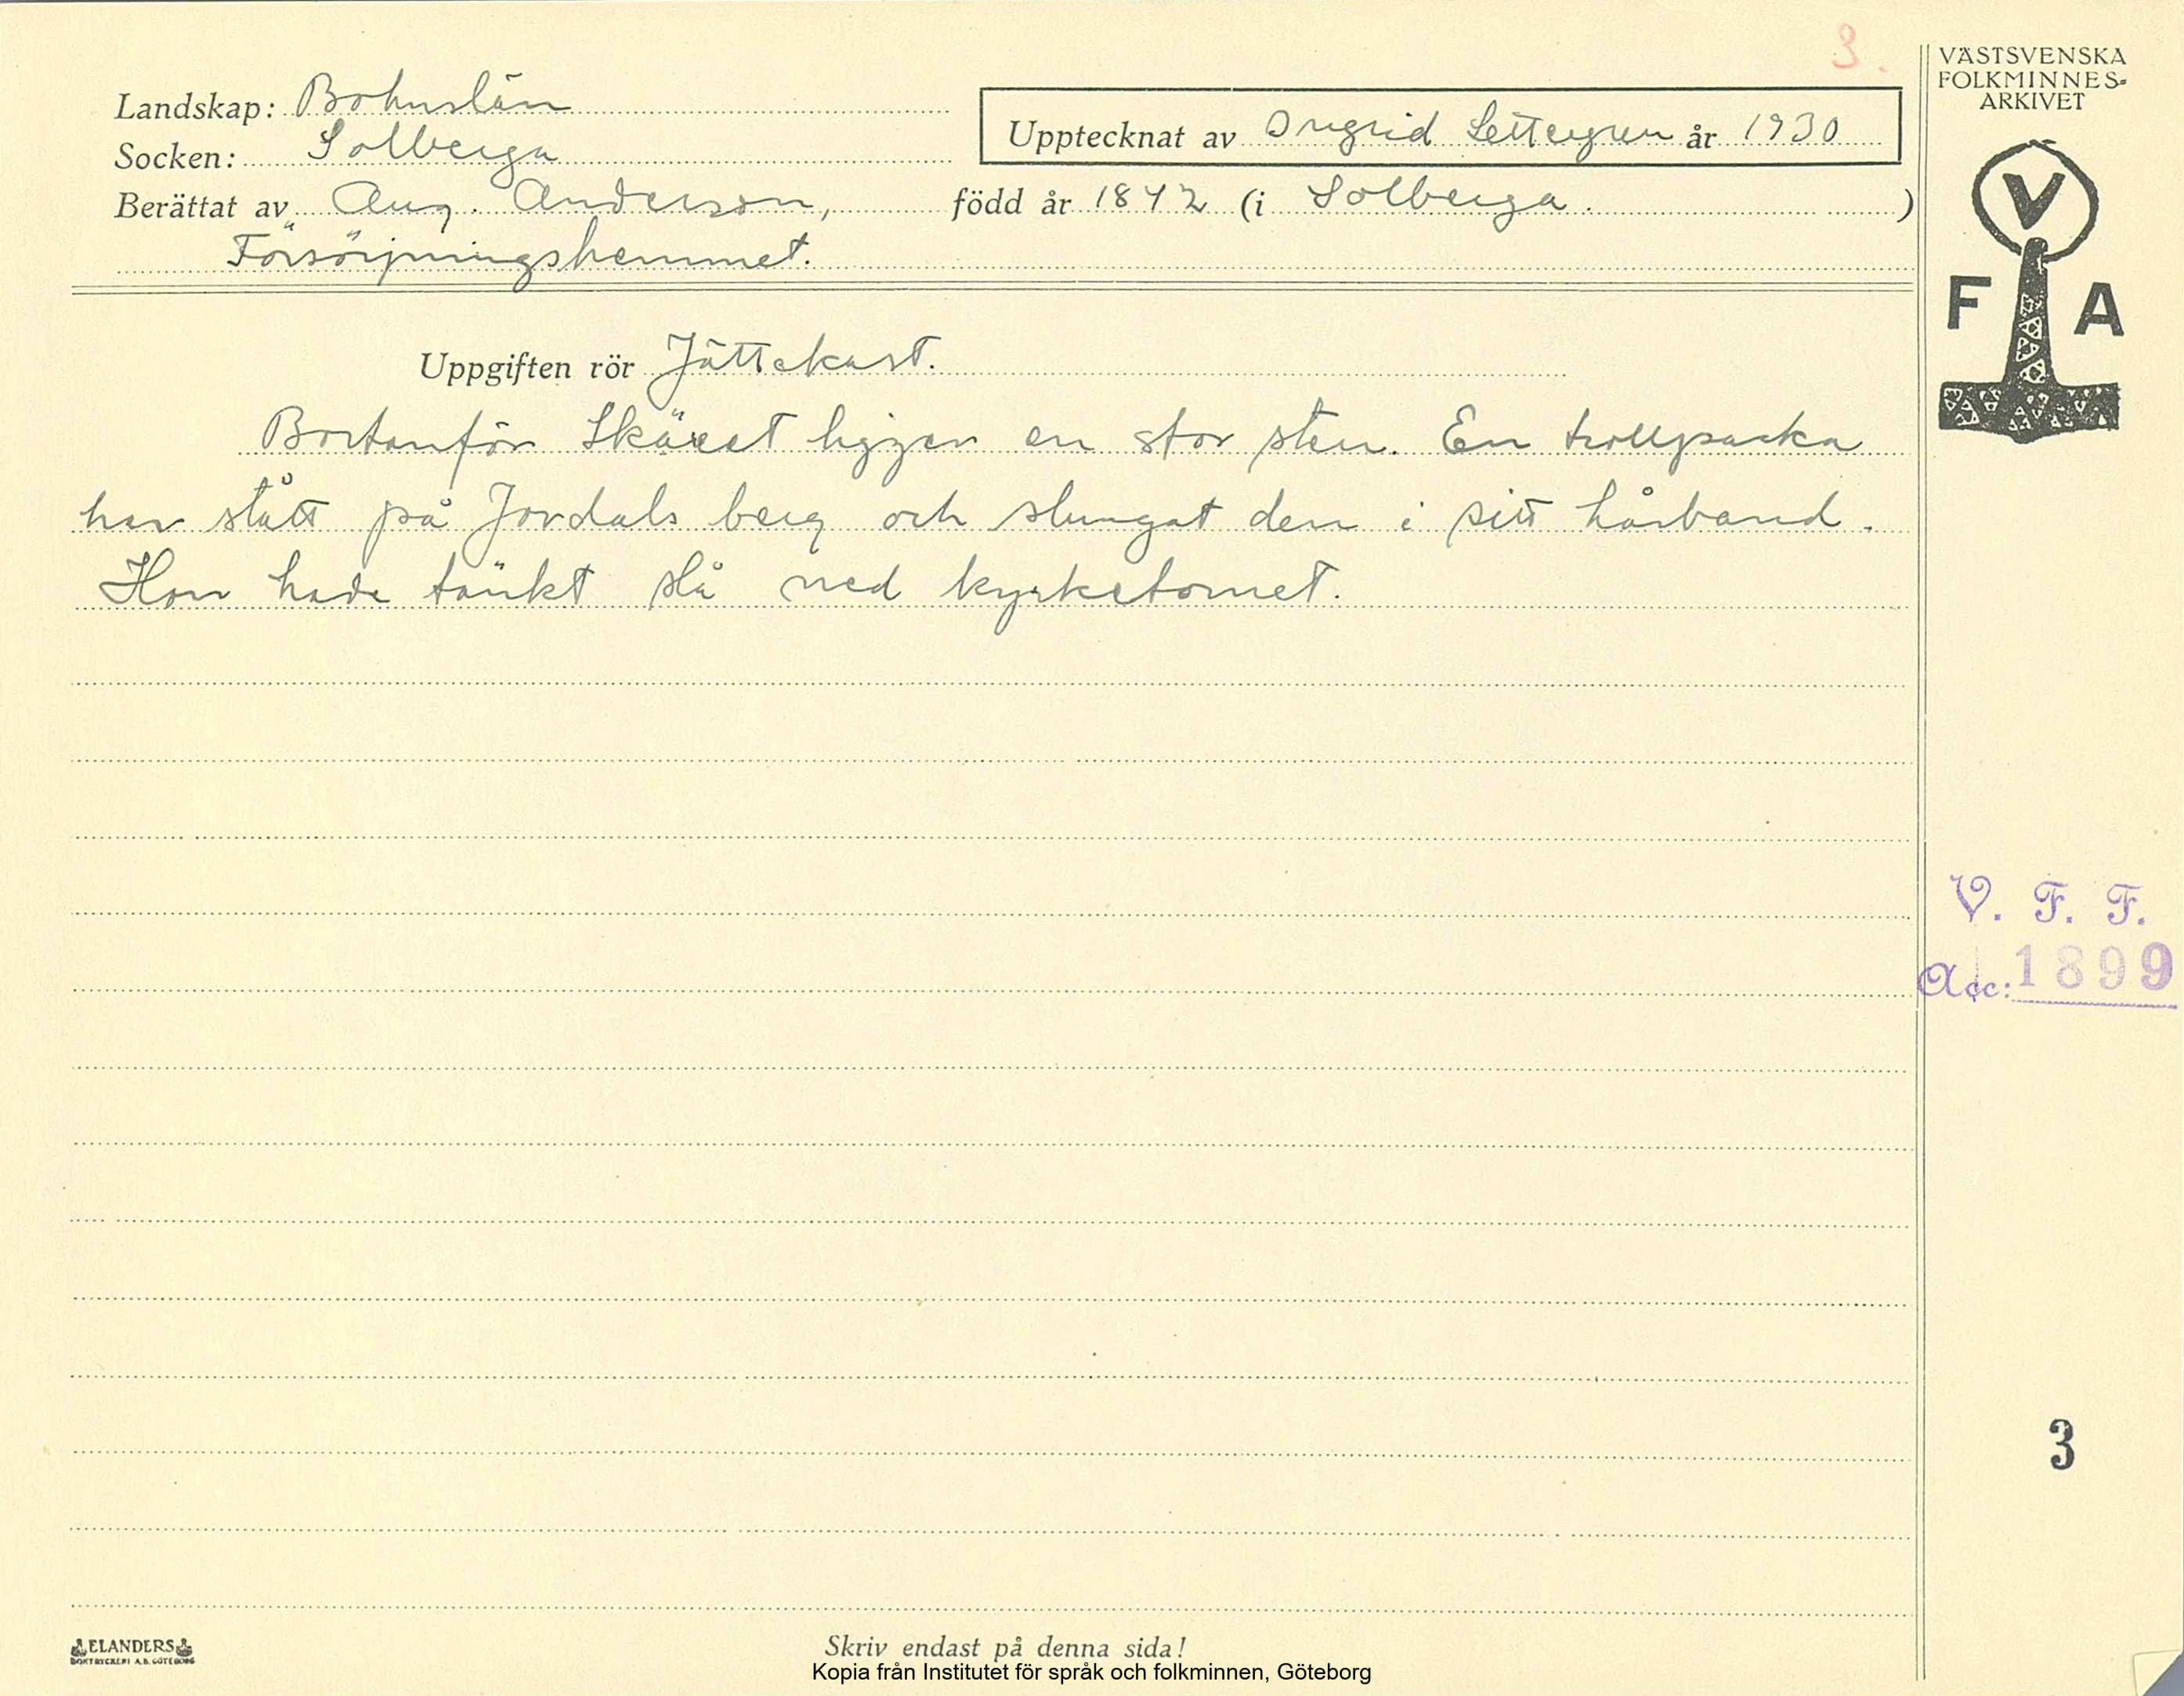 3.
VÄSTSVENSKA
FOLKMINNES-
ARKIVET
Landskap: Bohuslän
Socken: Solberga
Upptecknat av Ingrid Settergren år 1930
Berättat av Aug. Anderson, född år 1842 (i Solberga. )
Försörjningshemmet.
V
F A
Uppgiften rör Jättekast.
Bortanför Skäret ligger en stor sten. En trollpacka
har stått på Jordals berg och slungat den i sitt hårband.
Hon hade tänkt slå ned kyrketornet.
V. F. F.
Acc: 1899
3
ELANDERS
BOKTRYCKERI A.B. GÖTEBORG
Skriv endast på denna sida!
Kopia från Institutet för språk och folkminnen, Göteborg